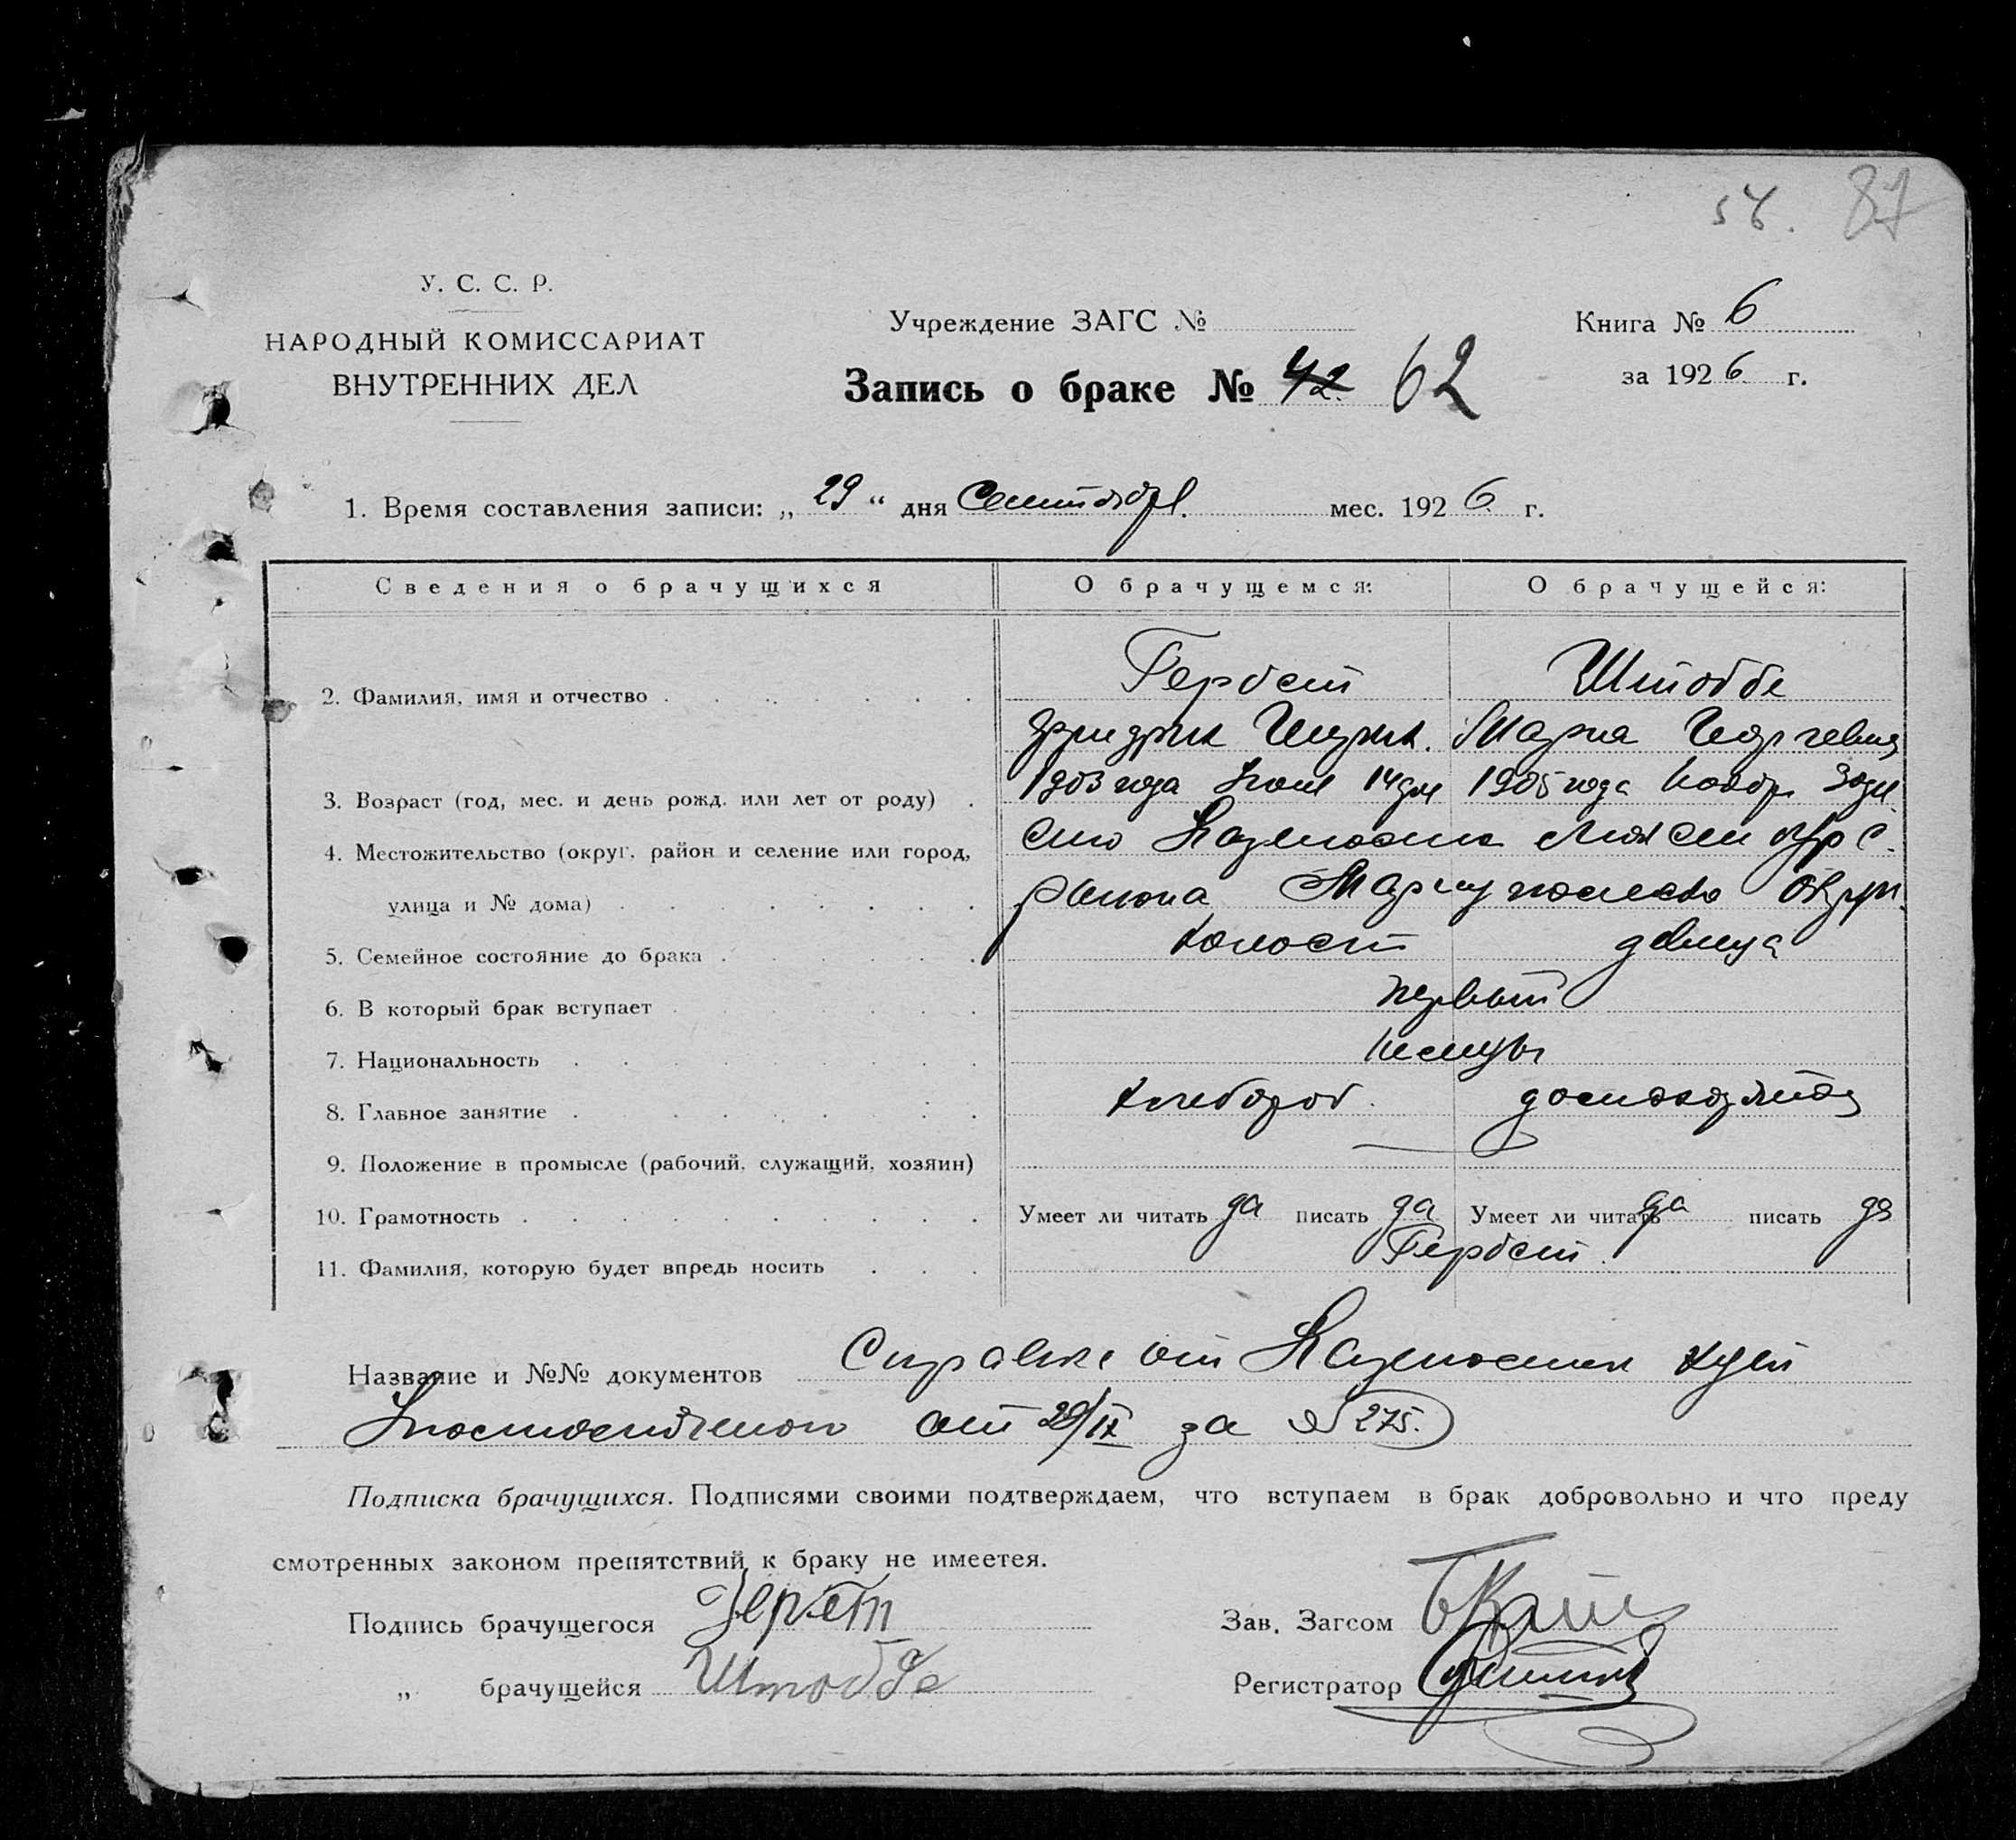 54. 87
У. С. С. Р.
НАРОДНЫЙ КОМИССАРИАТ
ВНУТРЕННИХ ДЕЛ
Учреждение ЗАГС №
Книга № 6
за 1926 г.
Запись о браке № 42 62
1. Время составления записи: „ 29 “ дня Сентября мес. 1926 г.
Сведения о брачущихся О брачущемся: О брачущейся:
2. Фамилия, имя и отчество Гербст Штоббе
Фридрих Мария Георгевна
3. Возраст (год, мес. и день рожд. или лет от роду) 1903 года 14 дня 1905 года Ноябр.
4. Местожительство (округ, район и селение или город,
улица и № дома) района Мариупольского Округ.
5. Семейное состояние до брака холост девица
6. В который брак вступает первый
7. Национальность Немцы
8. Главное занятие хлебороб. домохозяйка
9. Положение в промысле (рабочий, служащий, хозяин) —
10. Грамотность Умеет ли читать да писать да Умеет ли читать да писать да
11. Фамилия, которую будет впредь носить Гербст.
Название и №№ документов Справка от
от 29/IX за № 275.
Подписка брачущихся. Подписями своими подтверждаем, что вступаем в брак добровольно и что преду
смотренных законом препятствий к браку не имеетея.
Подпись брачущегося Гербст Зав. Загсом
„ брачущейся Штоббе Регистратор